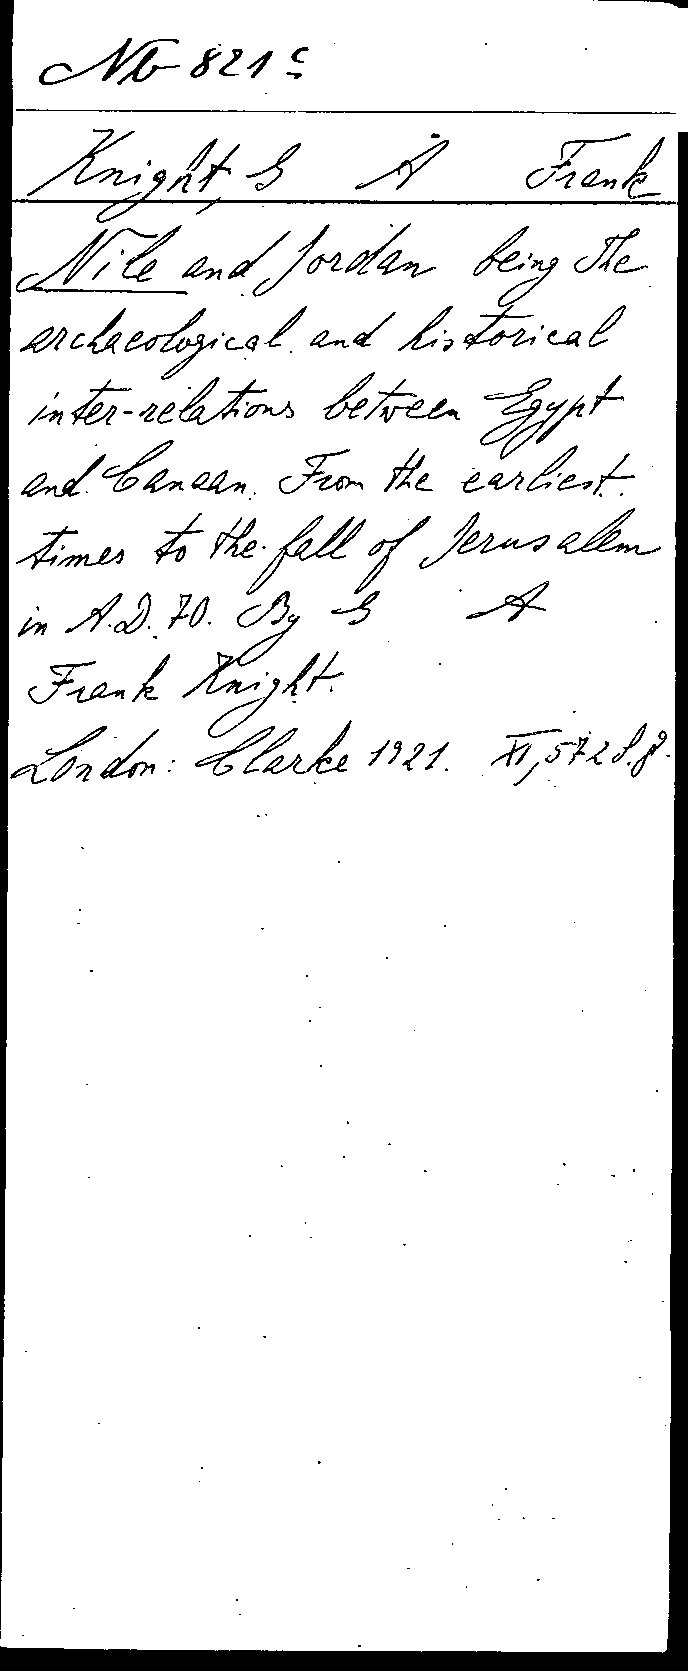 Nb 821 c
Knight, G A Frank
Nile and Jordan being the
archaeological and historical
inter-relations between Egypt
and Canaan. From the earliest
times to the fall of Jerusalem
in A.D. 70. By G A
Frank Knight.
London: Clarke 1921. XI, 572 S. 8.